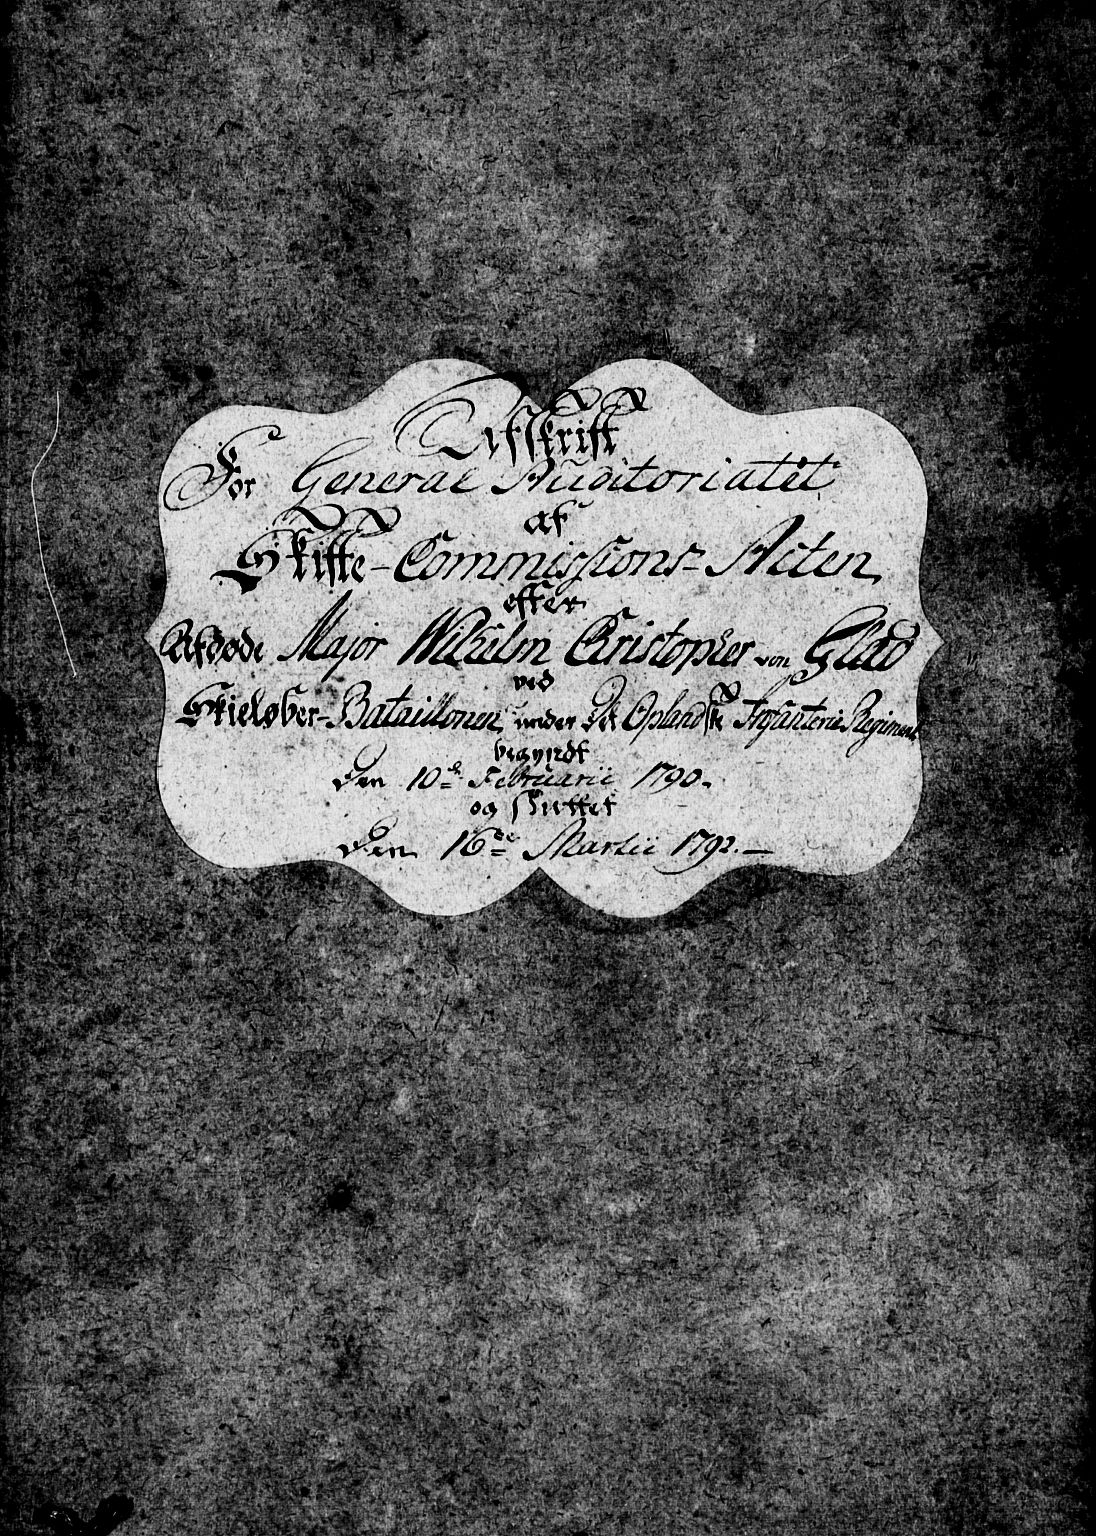 Afskrift
For General Auditoriatet
af
Skifte-Commissions-Acten
efter
Afdøde Major Wilhelm Christopher von Glad
ved
Skieløber-Bataillonen under Det Oplandske Infanterie Regiment
begyndt
Den 10de Februarii 1790.
og sluttet
Den 16de Martii 1792.